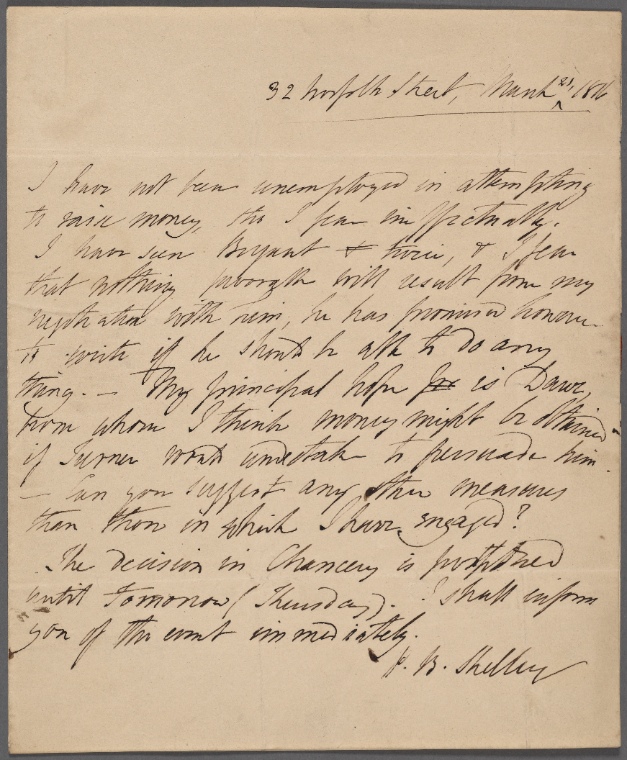 32 Norfolk Street, March 21, 1816
I have not been unemployed in attempting
to raise money, tho I fear ineffectually.
I have seen Bryant & twice, & I fear
that nothing favorable will result from my
negotiation with him, he has promised however
to write if he should be able to do any
thing. — My principal hope is Dawe,
from whom I think money might be obtained
if Turner would undertake to persuade him.
— Can you suggest any other measures
than those in which I have engaged?
The decision in Chancery is postponed
until Tomorrow (Thursday). I shall inform
you of the event immediately.
P. B. Shelley